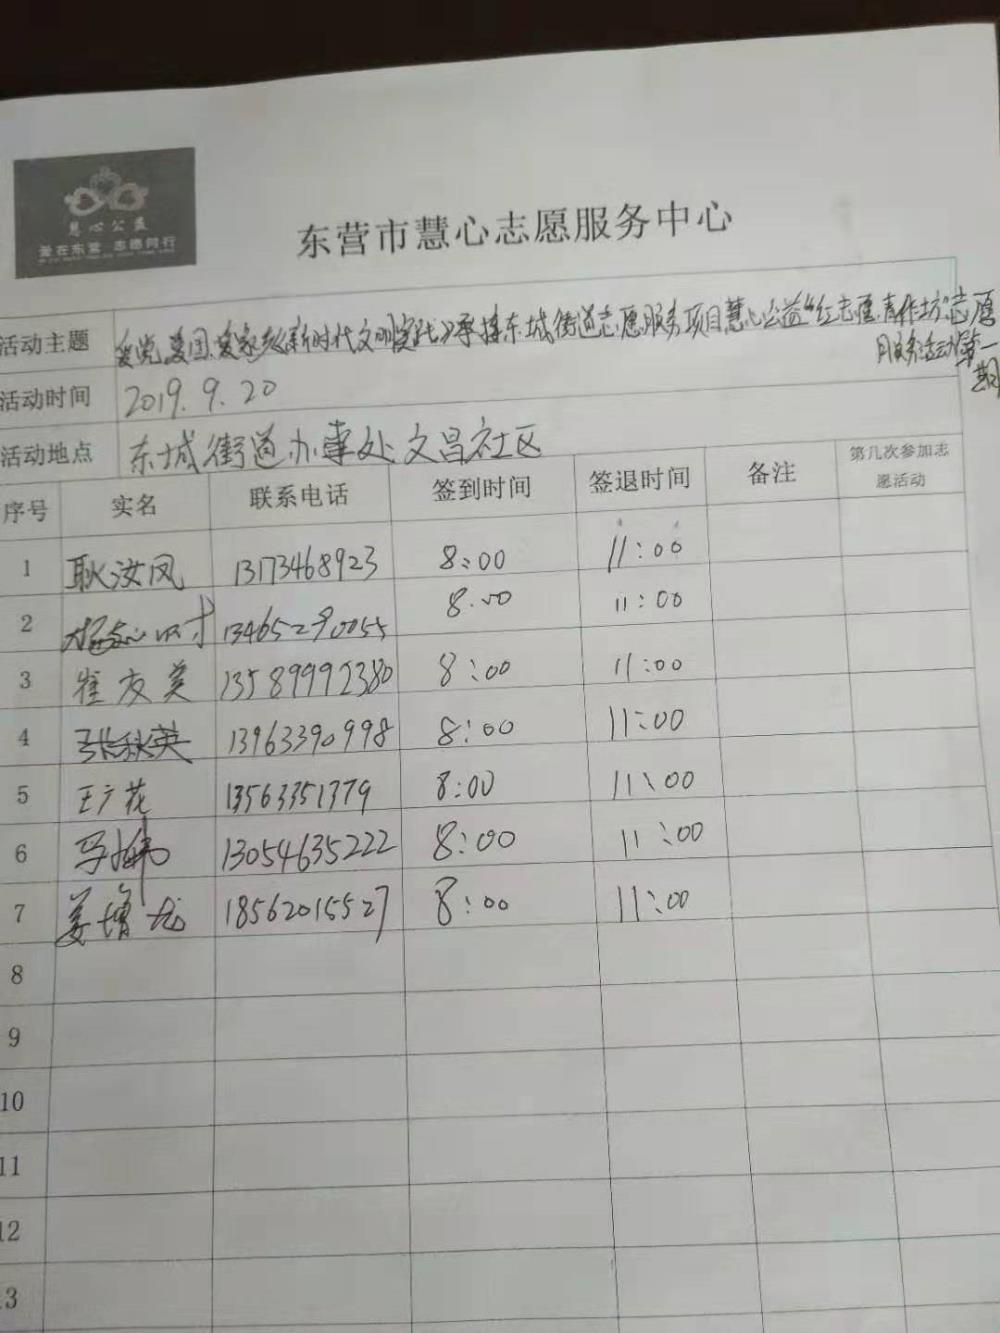 慧心公益
爱在东营 志愿同行
东营市慧心志愿服务中心
活动主题 爱党、爱国、爱家 新时代文明实践》承接东城街道志愿服务项目慧心公益“红志愿、青作坊”志愿
服务活动第一
期
活动时间 2019.9.20
活动地点 东城街道办事处文昌社区
序号 实名 联系电话 签到时间 签退时间 备注 第几次参加志
愿活动
1 耿汝凤 13173468923 8:00 11:00
2 13465290055 8:00 11:00
3 崔友美 13589992380 8:00 11:00
4 张秋英 13963390998 8:00 11:00
5 王广花 13563351379 8:00 11:00
6 13054635222 8:00 11:00
7 姜增龙 18562015527 8:00 11:00
8
9
10
11
12
13